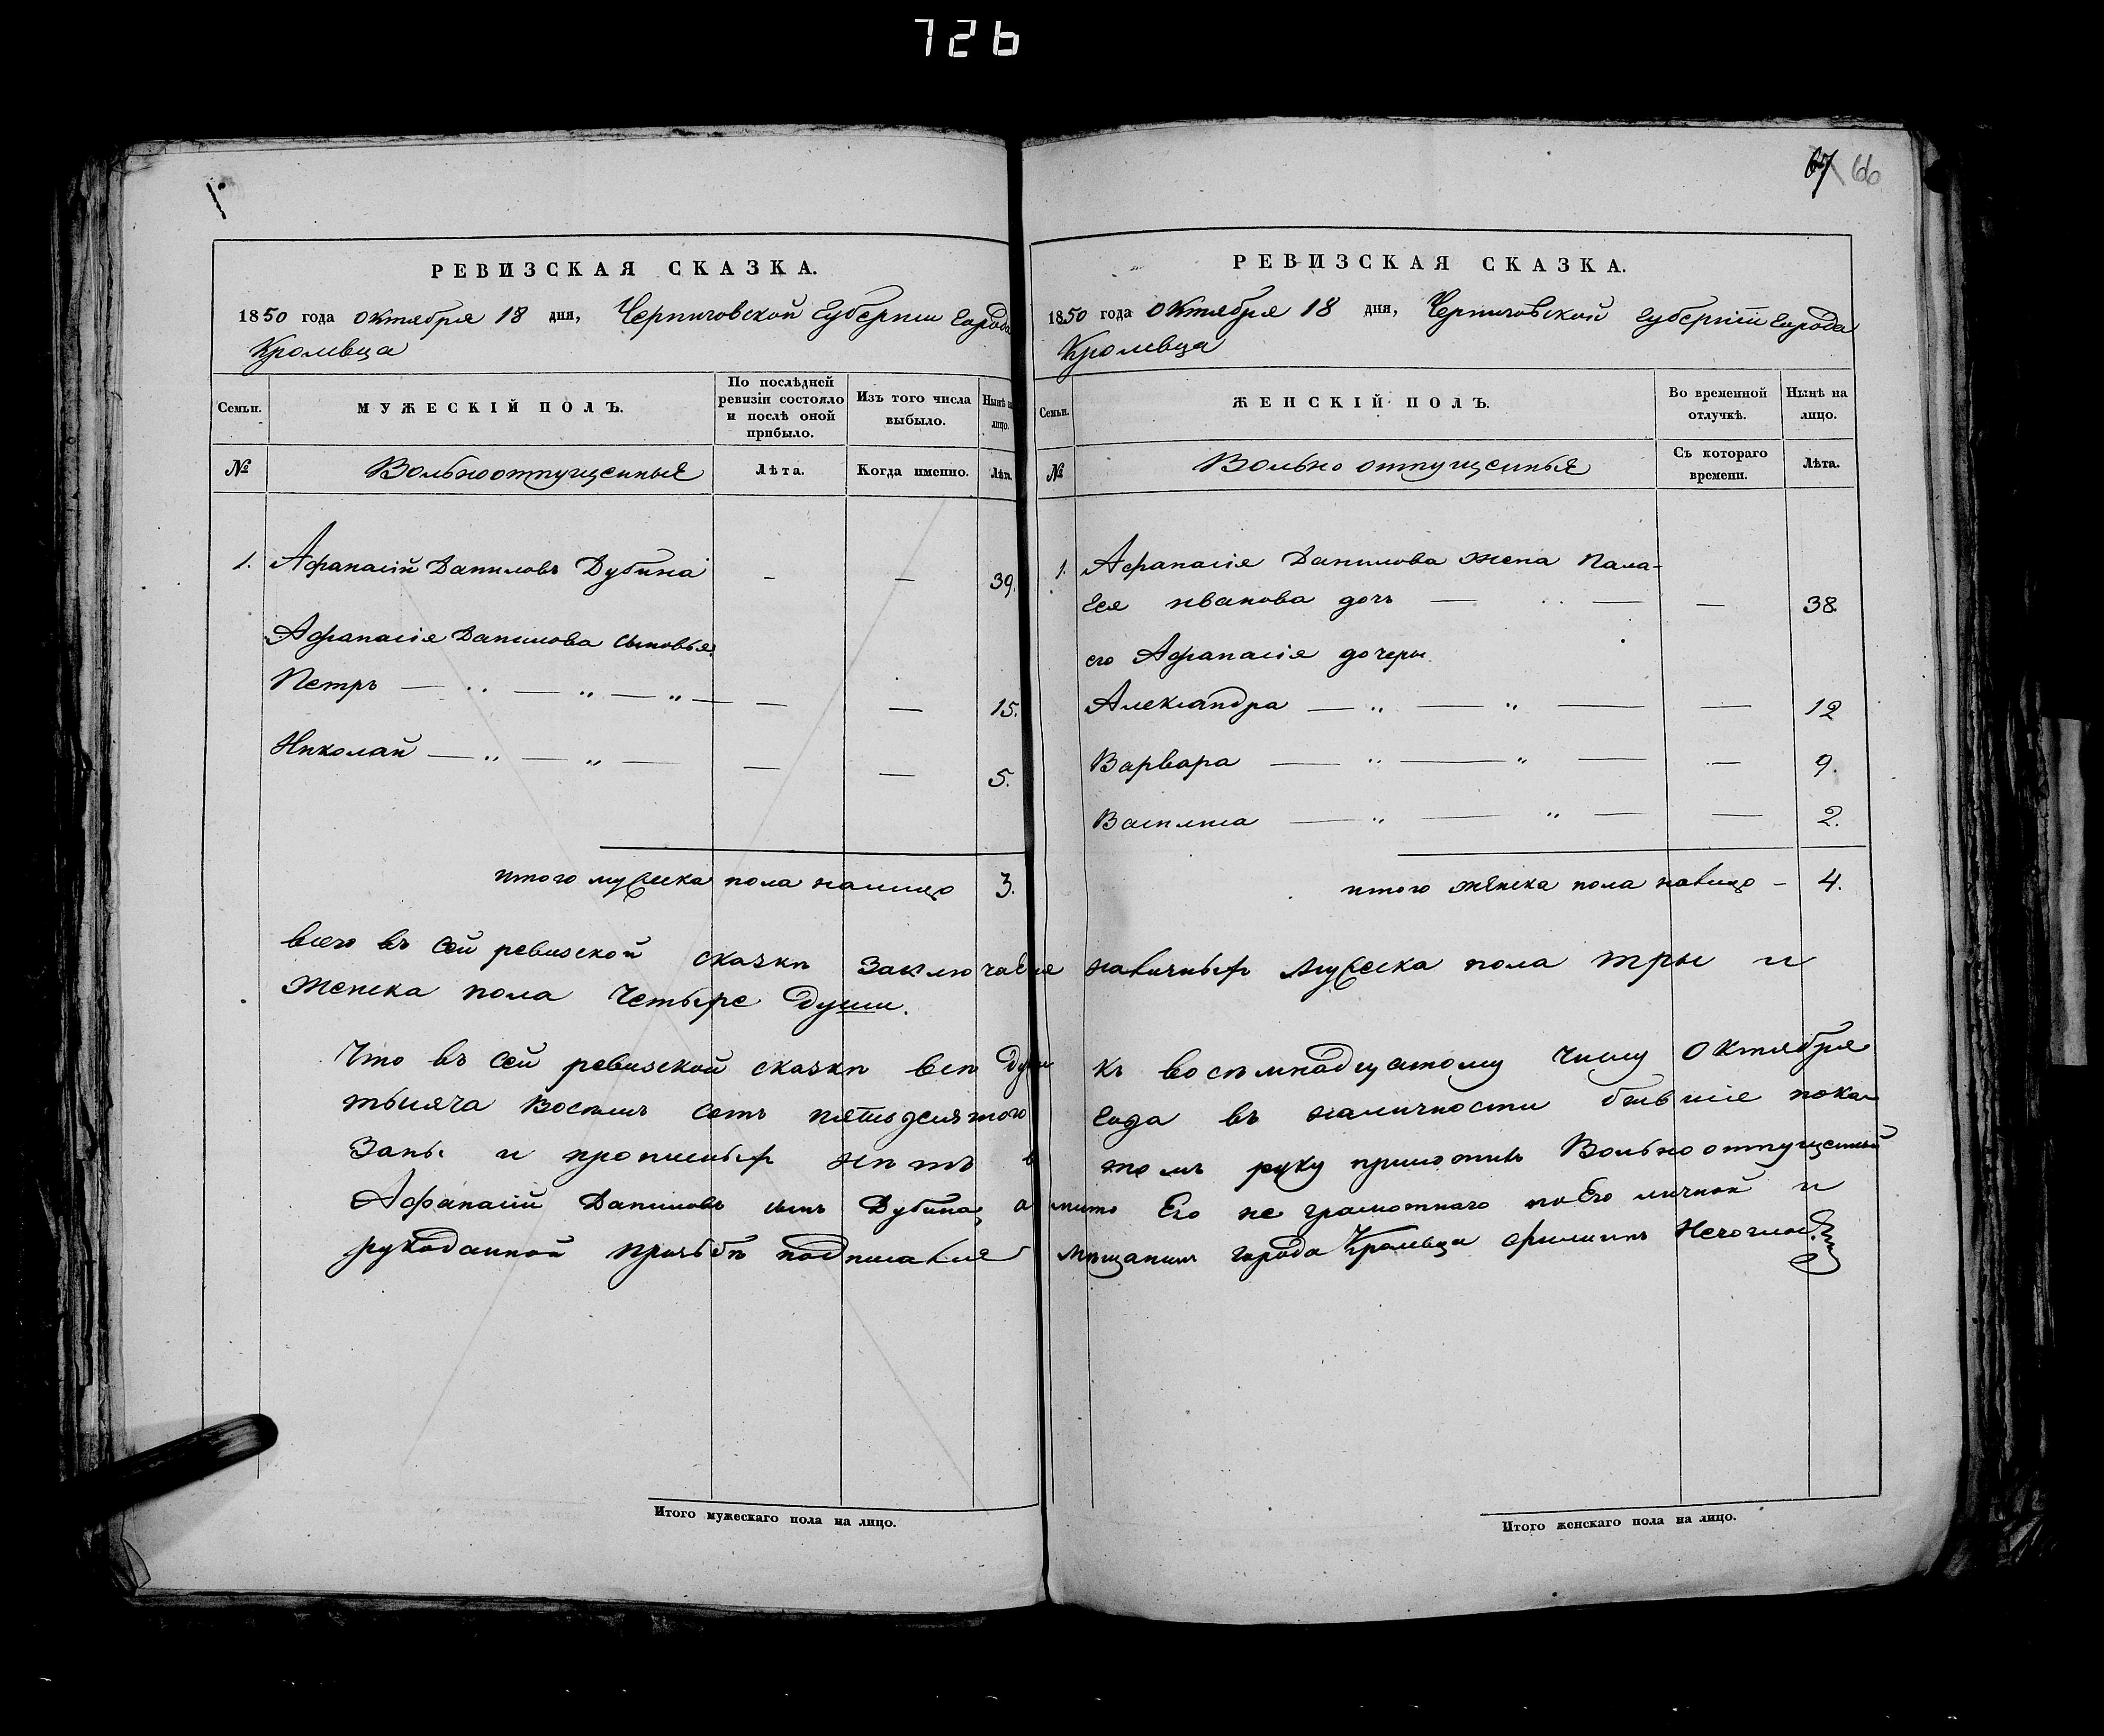 726
67 66
РЕВИЗСКАЯ СКАЗКА.
1850 года октября 18 дня, Черниговской Губернии Города
Кролевца
Семьи.
МУЖЕСКІЙ ПОЛЪ.
По послѣдней
ревизіи состояло
и послѣ оной
прибыло.
Изъ того числа
выбыло.
Нынѣ на
лицо.
№
Вольноотпущенные
Лѣта.
Когда именно.
Лѣта.
1. Афанасій Даниловъ Дубина — — 39.
Афанасія Данилова сыновья
Петръ — „ — „ — „ — — — 15.
Николай — „ — „ — — — 5.
итого мужеска пола налицо 3.
РЕВИЗСКАЯ СКАЗКА.
1850 года Октября 18 дня, Черниговской губерніи Города
Кролевца
Семьи.
ЖЕНСКІЙ ПОЛЪ.
Во временной
отлучкѣ.
Нынѣ на
лицо.
№
Вольно отпущенныя
Съ котораго
времени.
Лѣта.
1. Афанасія Данилова жена Пала-
гея иванова дочь — „ — — 38
его Афанасія дочеры
Александра — „ — „ — — 12
Варвара — „ — „ — — 9.
Василиса — „ — „ — — 2.
итого женска пола налицо – 4.
всего въ сей ревизской сказки заключаеся наличныхъ мужеска пола тры и
женска пола четыре души.
Что въ сей ревизской сказки всѣ души къ восѣмнадцатому числу Октября
тысяча восѣмъ сотъ пятьдесятого Года въ наличности бывшіе пока-
заны и прописныхъ нѣтъ въ томъ руку приложилъ Вольноотпущенный
Афанасій Даниловъ сынъ Дубина, а место Его не грамотнаго по Его личной и
рукоданной прозьбѣ подписался мѣщанинъ города Кролевца филипъ
Итого мужескаго пола на лицо.
Итого женскаго пола на лицо.